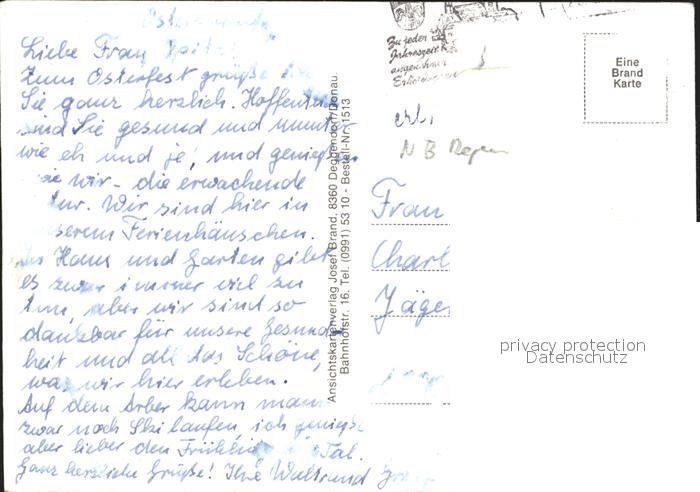 Liebe Frau
Zum Osterfest grüße
Sie ganz herzlich. Hoffentlich
sind Sie gesund und munter
wie eh und je, und genießen
wie wir - die erwachende
tur. Wir sind hier in
serem Ferienhäuschen.
Haus und Garten gibt
es zwar immer viel zu
tun, aber wir sind so
dankbar für unsere Gesund
heit und all das Schöne,
was wir hier erleben.
Auf dem Arber kann man
zwar noch Ski laufen, ich genieße
aber lieber den Frühling Tal.
Ganz herzliche Grüße! Ihre Waltraud
Ansichtskartenverlag Josef Brand, 8360 Deggendorf/Donau.
Bahnhofstr. 16, Tel. (0991) 53 10 - Bestell-Nr. 1513
Zu jeder
Jahreszeit
angenehmer
Eine
Brand
Karte
erl.
N B
Frau
Charl
Jäge
privacy protection
Datenschutz